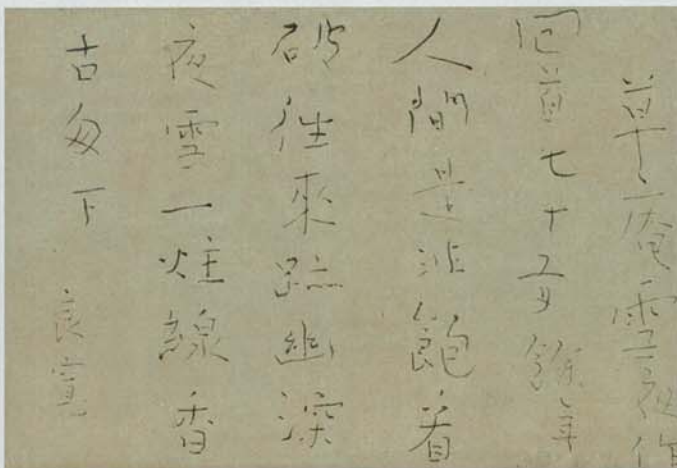 草庵雪夜作
回首七十有餘年
人間是非飽看
破往來跡幽深
夜雪一炷線香
古匆下　良寛